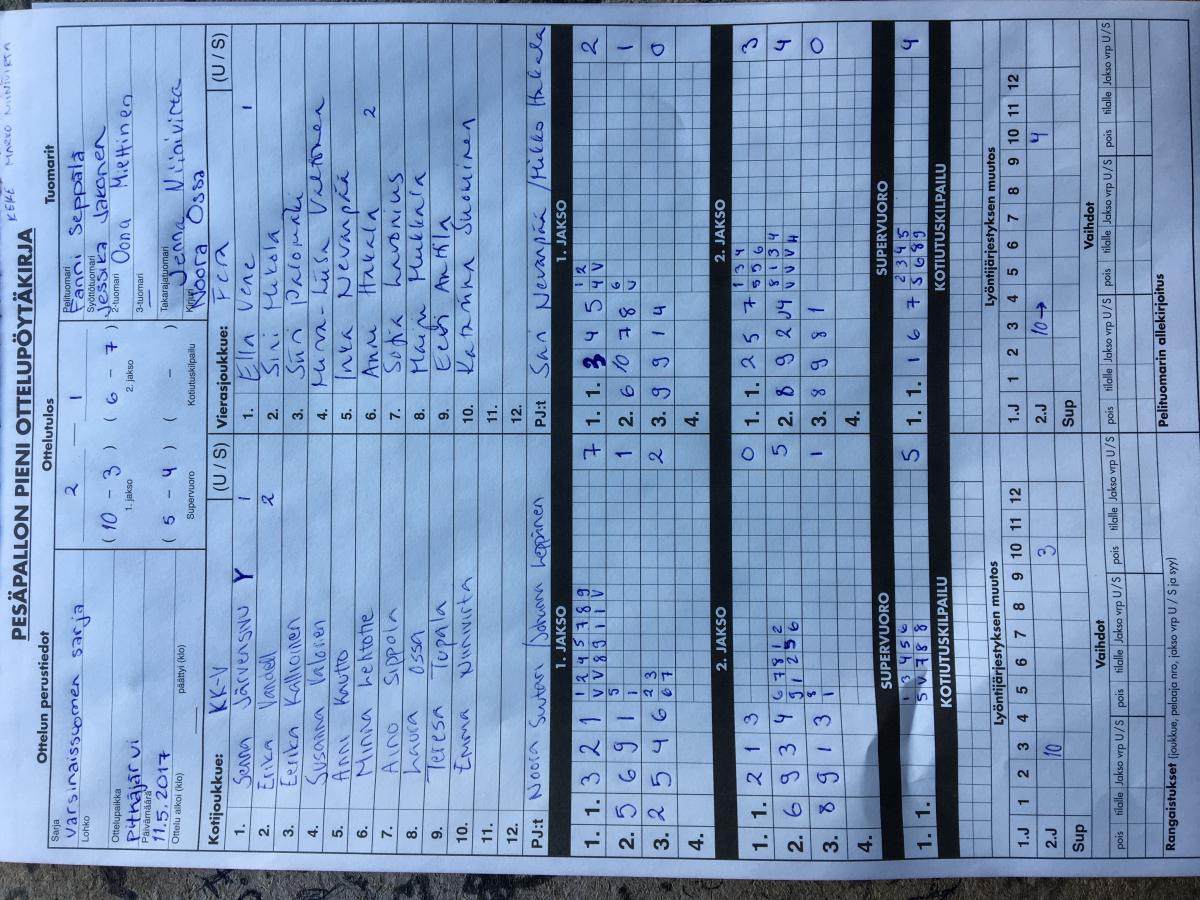 KERÄ MARKO NIINIVIRTA
PESÄPALLON PIENI OTTELUPÖYTÄKIRJA
Ottelun perustiedot
Ottelutulos
Tuomarit
Sarja
Varsinaissuomen sarja
Lohko
Ottelupaikka
Pitkäjärvi
Päivämäärä
11.5.2017
Ottelu alkoi (klo)
päättyi (klo)
2 1
( 10 - 3 ) ( 6 - 7 )
1. jakso 2. jakso
( 5 - 4 ) ( - )
Supervuoro Kotiutuskilpailu
Pelituomari
Fanni Seppälä
Syöttötuomari
Jessika Jakonen
2-tuomari
Oona Miettinen
3-tuomari
—
Takarajatuomari
Jenna Niinivirta
Kirjuri
Noora Ossa
Kotijoukkue: KK-V (U / S)
1. Jenna Järvensivu Y 1
2. Erika Vandell 2
3. Eerika Kallioinen
4. Susanna Valonen
5. Anni Kautto
6. Minna Lehtotie
7. Aino Sippola
8. Laura Ossa
9. Teresa Tupala
10. Emma Niinivirta
11.
12.
PJ:t Noora Suutari / Johanna Leppänen
Vierasjoukkue: Fera (U / S)
1. Ella Vene 1
2. Sini Mekola
3. Siiri Palomäki
4. Minna-Liisa Valtonen
5. Inka Nevanpää
6. Annu Hakala 2
7. Sofia Lavonius
8. Maiju Hukkala
9. Eevi Anttila
10. Katariina Suominen
11.
12.
PJ:t Sari Nevanpää / Mikko Hakala
1. JAKSO
1. 1. 3 2 1 1 2 4 5 7 8 9 7
V V 8 9 1 1 V
2. 5 6 9 1 5 1
1
3. 2 5 4 6 2 3 2
6 7
4.
1. JAKSO
1. 1. 3 4 5 1 2 2
4 V
2. 6 10 7 8 6 1
V
3. 9 9 1 4 0
4.
2. JAKSO
1. 1. 2 1 3 0
2. 6 9 3 4 6 7 8 1 2 5
9 1 2 5 6
3. 8 9 1 3 8 1
1
4.
2. JAKSO
1. 1. 2 5 7 1 3 4 3
5 5 6
2. 8 9 2 4 8 1 3 4 4
V V V
3. 8 9 8 1 0
4.
SUPERVUORO
1. 1. 1 3 4 5 6 5
5 V 7 8 8
SUPERVUORO
1. 1. 1 6 7 2 3 4 5 4
5 6 8 9
KOTIUTUSKILPAILU
KOTIUTUSKILPAILU
Lyöntijärjestyksen muutos
1.J 1 2 3 4 5 6 7 8 9 10 11 12
2.J 10 3
Sup
Lyöntijärjestyksen muutos
1.J 1 2 3 4 5 6 7 8 9 10 11 12
2.J 10→ 4
Sup
Vaihdot
pois tilalle Jakso vrp U / S pois tilalle Jakso vrp U / S pois tilalle Jakso vrp U / S
Vaihdot
pois tilalle Jakso vrp U / S pois tilalle Jakso vrp U / S pois tilalle Jakso vrp U / S
Rangaistukset (joukkue, pelaaja nro, jakso vrp U / S ja syy)
Pelituomarin allekirjoitus